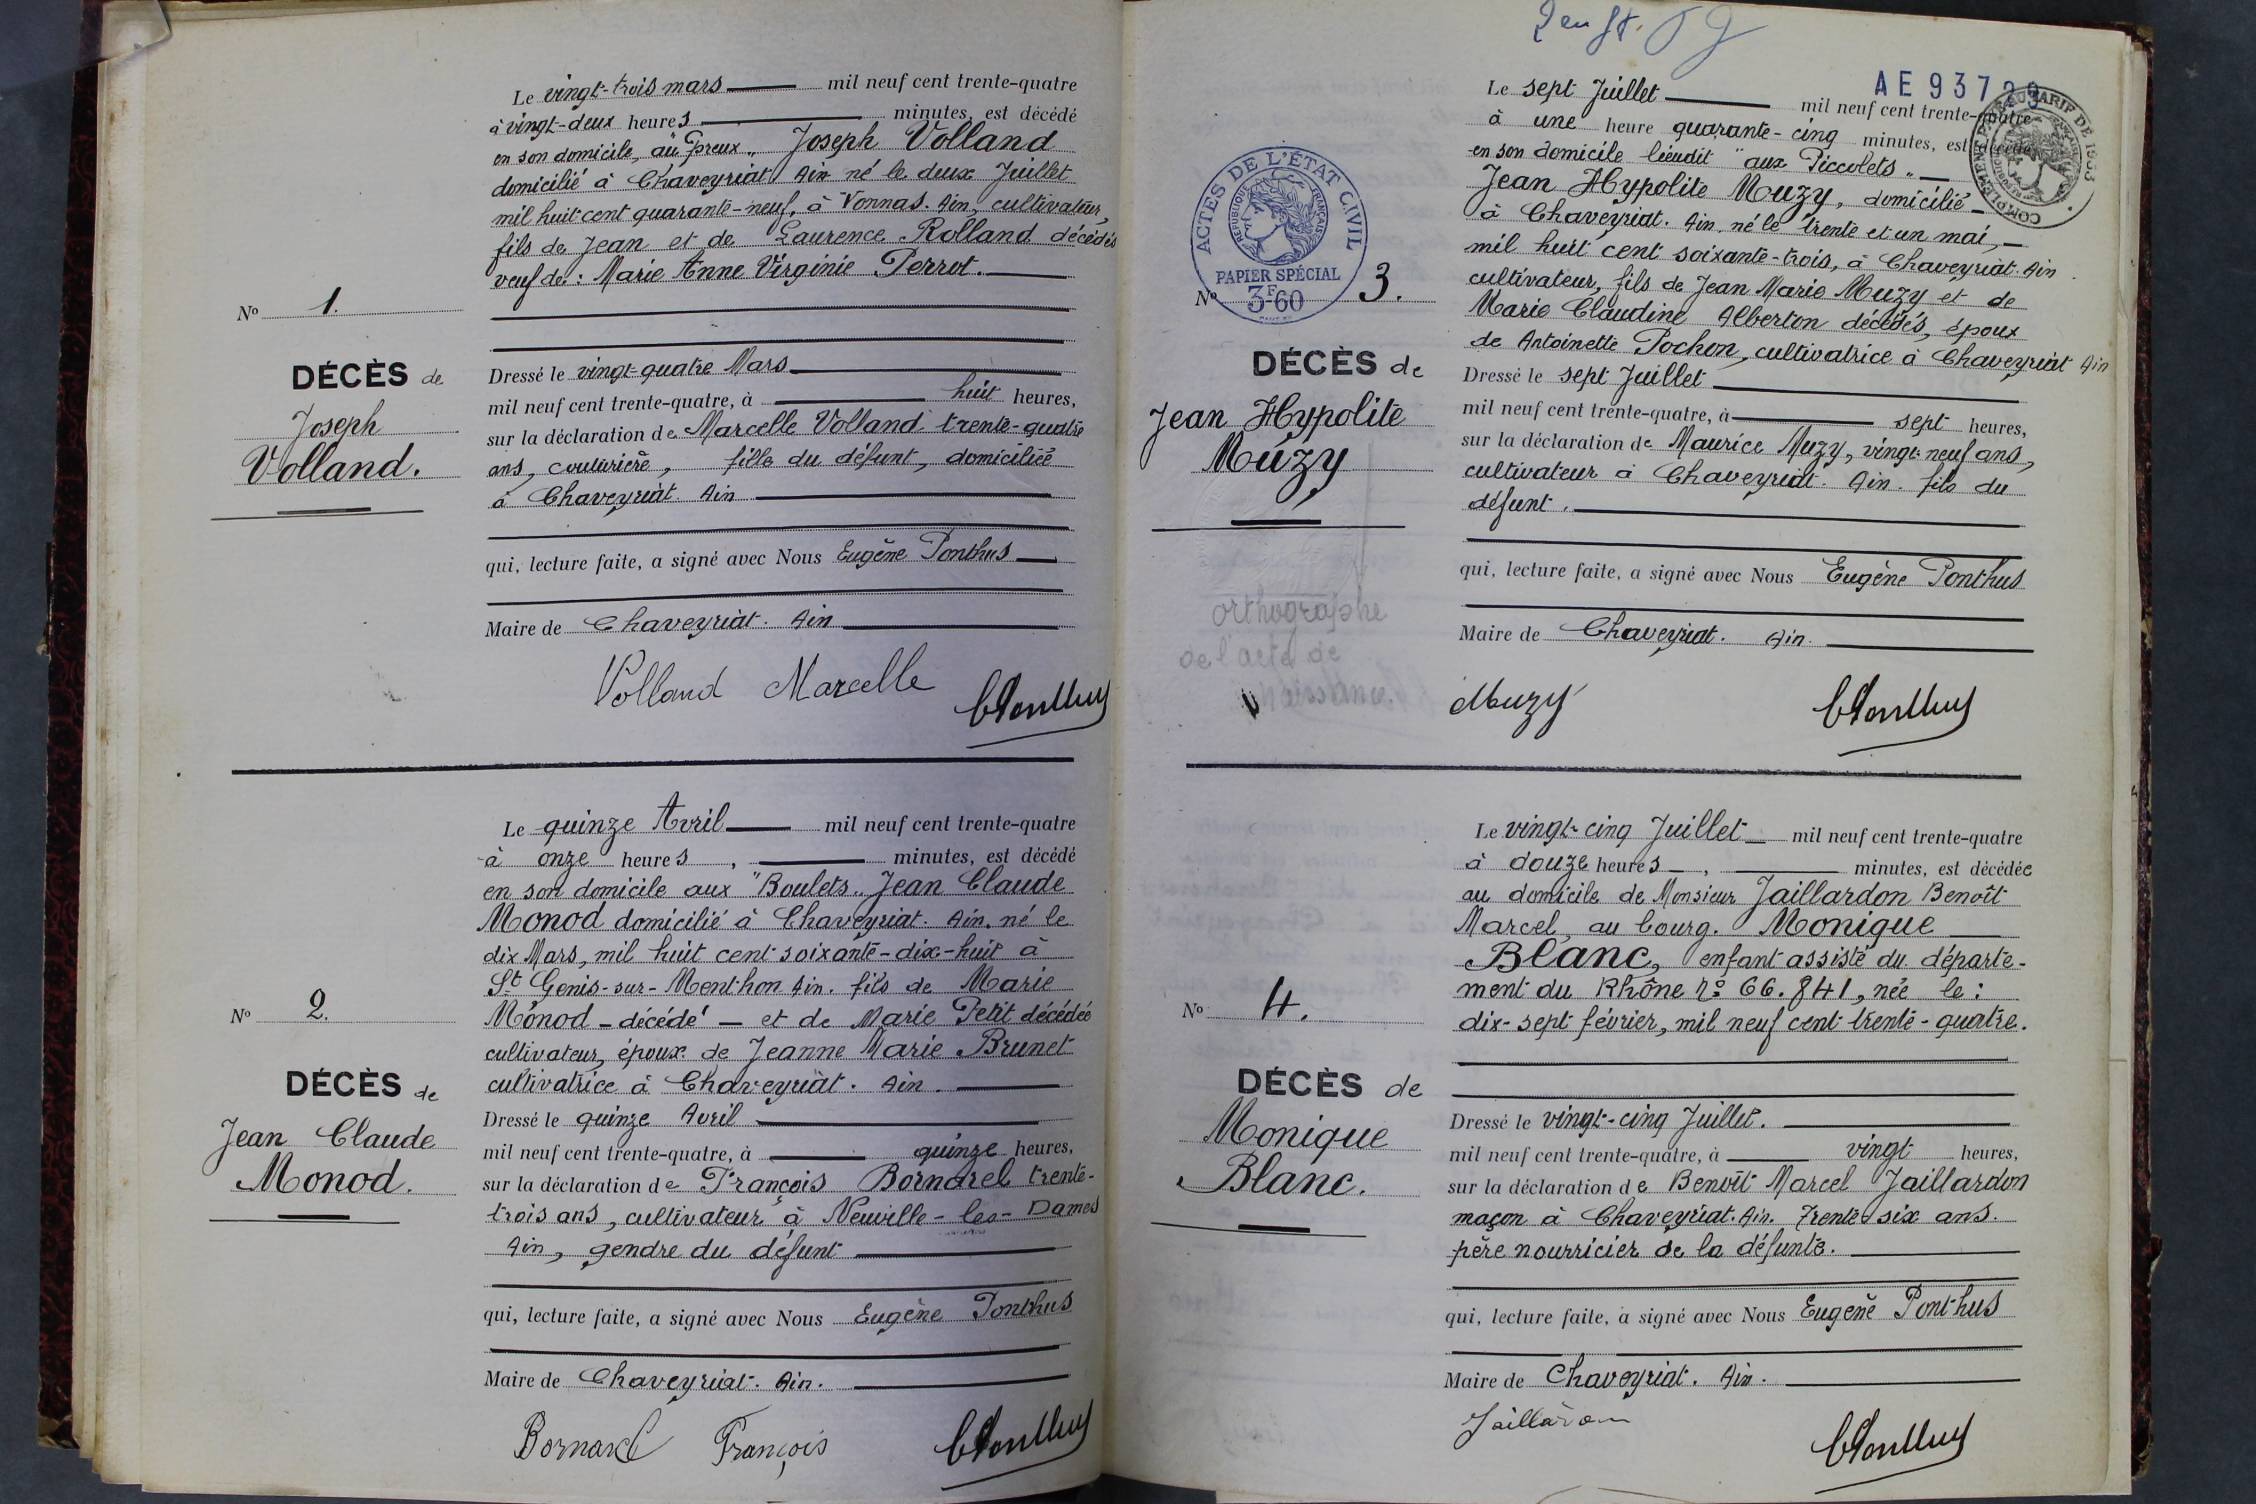 Le vingt-trois mars mil neuf cent trente-quatre
à vingt-deux heures minutes, est décédé
en son domicile, au "Preux" Joseph Volland
domicilié à Chaveyriat Ain né le deux Juillet
mil huit cent quarante-neuf, à Vonnas. Ain, cultivateur,
fils de Jean et de Laurence Rolland décédés
veuf de : Marie Anne Virginie Perrot.
No 1.
DÉCÈS de
Joseph
Volland.
Dressé le vingt-quatre Mars
mil neuf cent trente-quatre, à huit heures,
sur la déclaration de Marcelle Volland trente-quatre
ans, couturière, fille du défunt, domiciliée
à Chaveyriat. Ain
qui, lecture faite, a signé avec Nous Eugène Ponthus
Maire de Chaveyriat. Ain
Volland Marcelle
Le quinze Avril mil neuf cent trente-quatre
à onze heures , minutes, est décédé
en son domicile aux "Boulets" Jean Claude
Monod domicilié à Chaveyriat. Ain. né le
dix Mars, mil huit cent soixante-dix-huit à
St Genis-sur-Menthon Ain. fils de Marie
Monod - décédé - et de Marie Petit décédée
cultivateur, époux de Jeanne Marie Brunet
cultivatrice à Chaveyriat. Ain.
No 2.
DÉCÈS de
Jean Claude
Monod.
Dressé le quinze Avril
mil neuf cent trente-quatre, à quinze heures,
sur la déclaration de François Bornarel trente-
trois ans, cultivateur à Neuville-les-Dames
Ain, gendre du défunt
qui, lecture faite, a signé avec Nous Eugène Ponthus
Maire de Chaveyriat. Ain.
Bornarel François
AE 93729
COMPLÉMENT PAYÉ AU TARIF DE 1933
Le sept Juillet mil neuf cent trente-quatre
à une heure quarante-cinq minutes, est décédé
en son domicile lieudit "aux Piccolets"
Jean Hypolite Muzy, domicilié
à Chaveyriat. Ain, né le trente et un mai,
mil huit cent soixante-trois, à Chaveyriat. Ain
cultivateur, fils de Jean Marie Muzy et de
Marie Claudine Alberton décédés, époux
de Antoinette Pochon, cultivatrice à Chaveyriat Ain
ACTES DE L'ÉTAT CIVIL
RÉPUBLIQUE FRANÇAISE
PAPIER SPÉCIAL
3F60
No 3.
DÉCÈS de
Jean Hypolite
Muzy
orthographe
de l'acte de
naissance.
Dressé le sept Juillet
mil neuf cent trente-quatre, à sept heures,
sur la déclaration de Maurice Muzy, vingt-neuf ans,
cultivateur à Chaveyriat. Ain. fils du
défunt.
qui, lecture faite, a signé avec Nous Eugène Ponthus
Maire de Chaveyriat. Ain.
Muzy
Le vingt-cinq Juillet mil neuf cent trente-quatre
à douze heures , minutes, est décédée
au domicile de Monsieur Jaillardon Benoît
Marcel, au bourg. Monique
Blanc, enfant assisté du départe-
ment du Rhône No 66.841, née le :
dix-sept février, mil neuf cent trente-quatre.
No 4.
DÉCÈS de
Monique
Blanc.
Dressé le vingt-cinq Juillet.
mil neuf cent trente-quatre, à vingt heures,
sur la déclaration de Benoît Marcel Jaillardon
maçon à Chaveyriat. Ain. Trente six ans.
père nourricier de la défunte.
qui, lecture faite, a signé avec Nous Eugène Ponthus
Maire de Chaveyriat. Ain.
Jaillardon